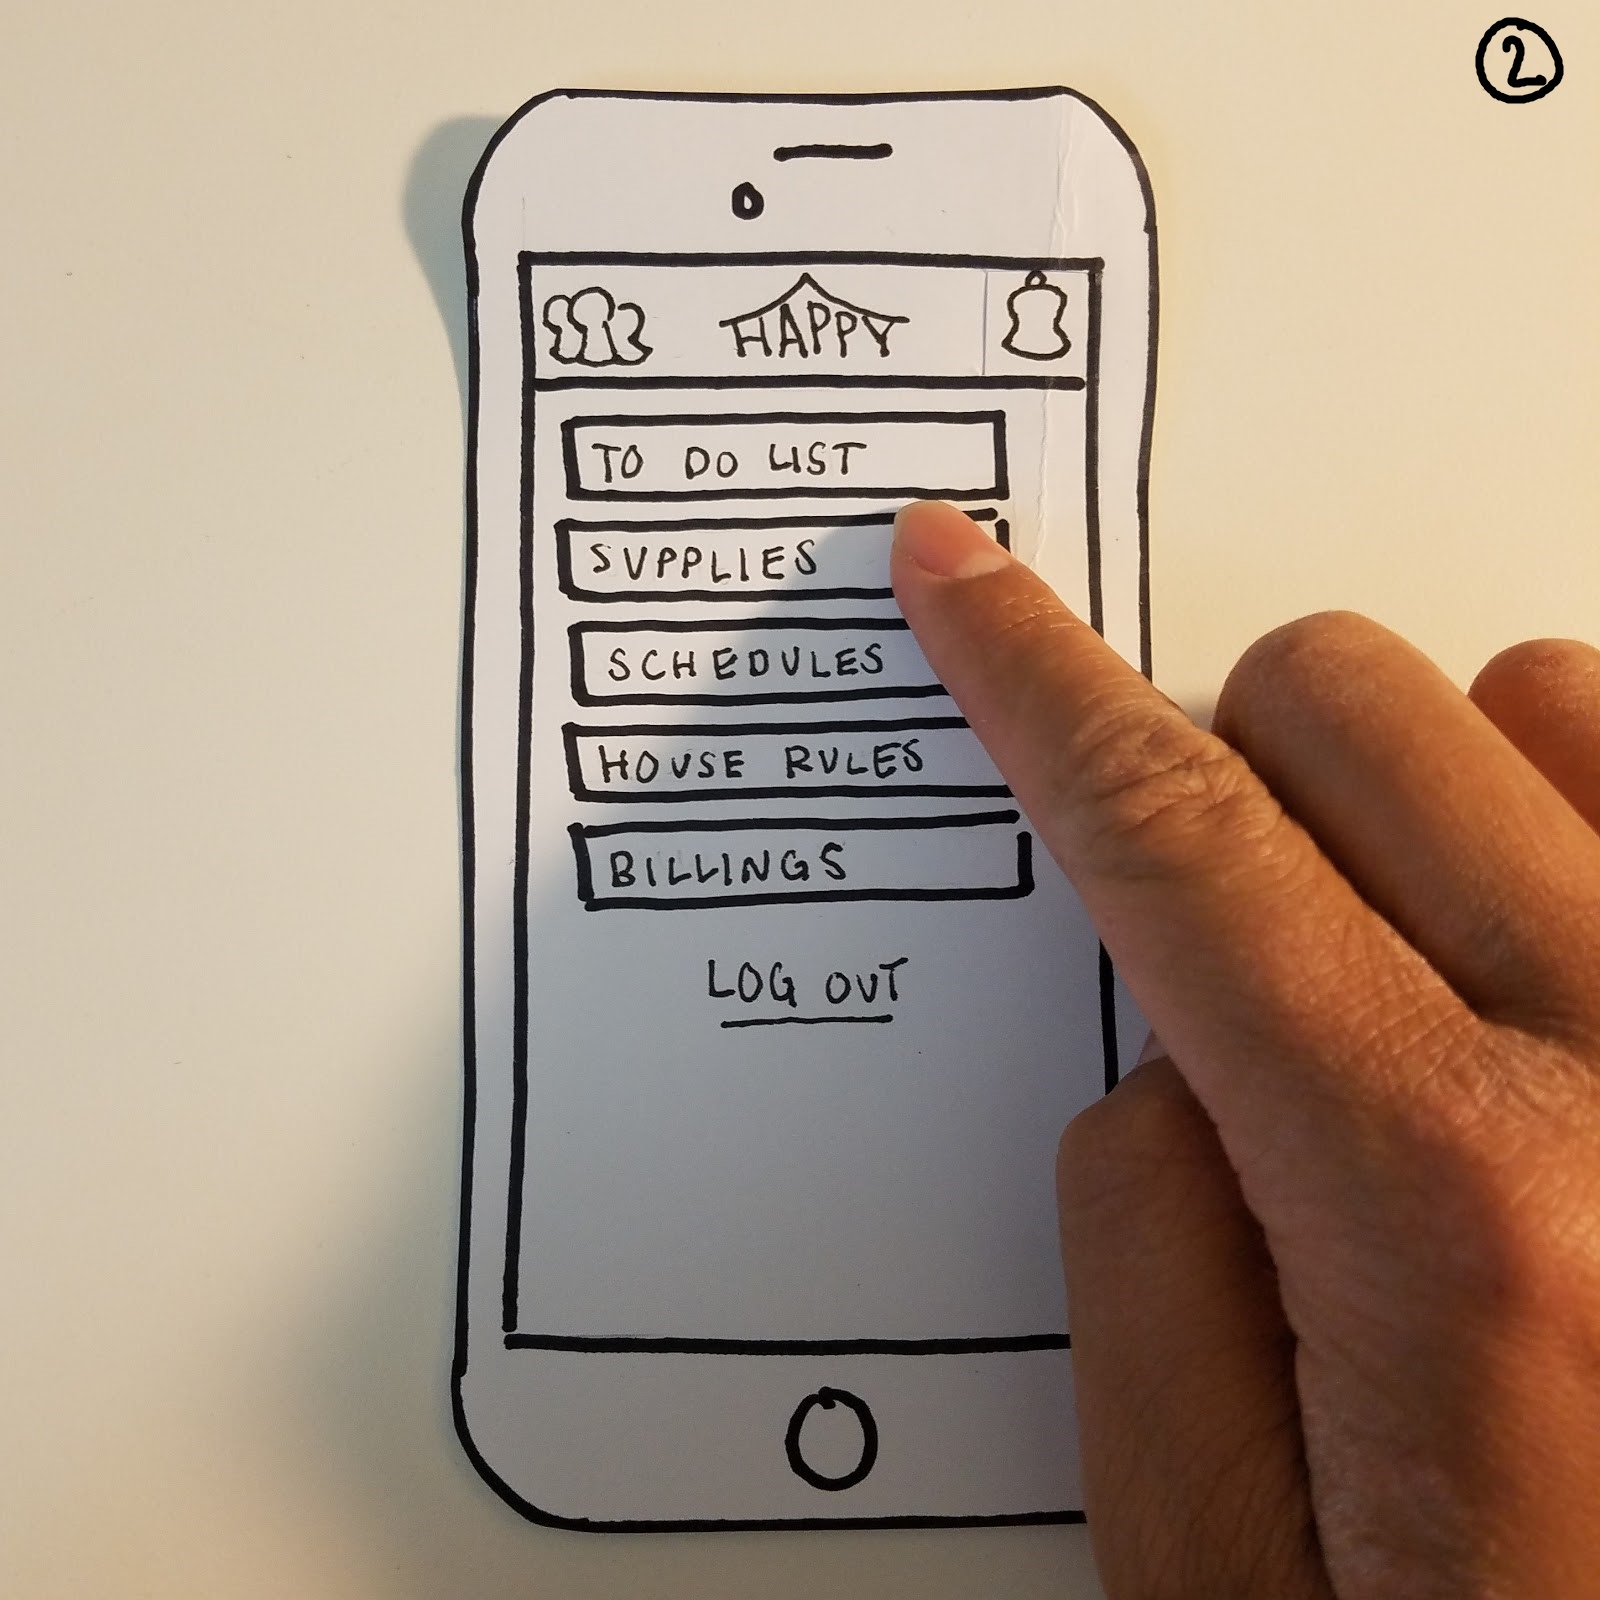 2
HAPPY
TO DO LIST
SUPPLIES
SCHEDULES
HOUSE RULES
BILLINGS
LOG OUT